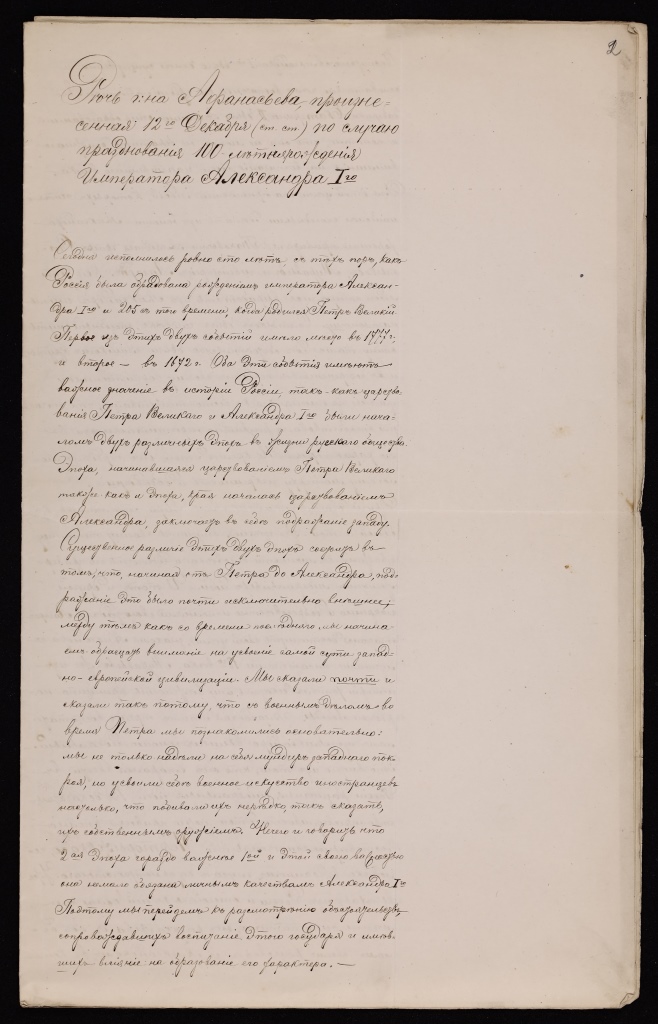 2
Рѣчь г-на Аѳанасьева, произне-
сенная 12го Декабря (ст. ст.) по случаю
празднованія 100 лѣтія рожденія
Императора Александра Iго
Сегодня исполнилось ровно сто лѣтъ съ тѣхъ поръ, какъ
Россія была обрадована рожденіемъ императора Алексан-
дра Iго и 205 съ того времени, когда родился Петръ Великій
Первое изъ этихъ двухъ событій имѣло мѣсто въ 1777 г.
и второе – въ 1672 г. Оба эти событія имѣютъ
важное значеніе въ исторіи Россіи, такъ-какъ царство-
ванія Петра Великаго и Александра Iго были нача-
ломъ двухъ различныхъ эпохъ въ жизни русскаго общества.
Эпоха, начинавшаяся царствованіемъ Петра Великаго
также какъ и эпоха, чрая началась царствованіемъ
Александра, заключаетъ въ себѣ подражаніе западу.
Существенное различіе этихъ двухъ эпохъ состоитъ въ
томъ, что, начиная отъ Петра до Александра, под-
ражаніе это было почти исключительно внѣшнее;
между тѣмъ какъ со времени послѣдняго мы начина-
емъ обращать вниманіе на усвоеніе самой сути запад-
но-европейской цивилизаціи. Мы сказали почти и
сказали такъ потому, что съ военнымъ дѣломъ во
время Петра мы познакомились основательно:
мы не только надѣли на себя мундиръ западнаго пок-
роя, но усвоили себѣ военное искусство иностранцевъ
настолько, что побивали ихъ нерѣдко, такъ сказать,
ихъ собственнымъ оружіемъ. Нечего и говорить что
2ая эпоха гораздо важнѣе 1ой и этой своею важностью
она немало обязана личнымъ качествамъ Александра Iго
Поэтому мы перейдемъ къ разсмотрѣнію обстоятельствъ,
сопровождавшихъ воспитаніе этого государя и имѣв-
шихъ вліяніе на образованіе его характера. —